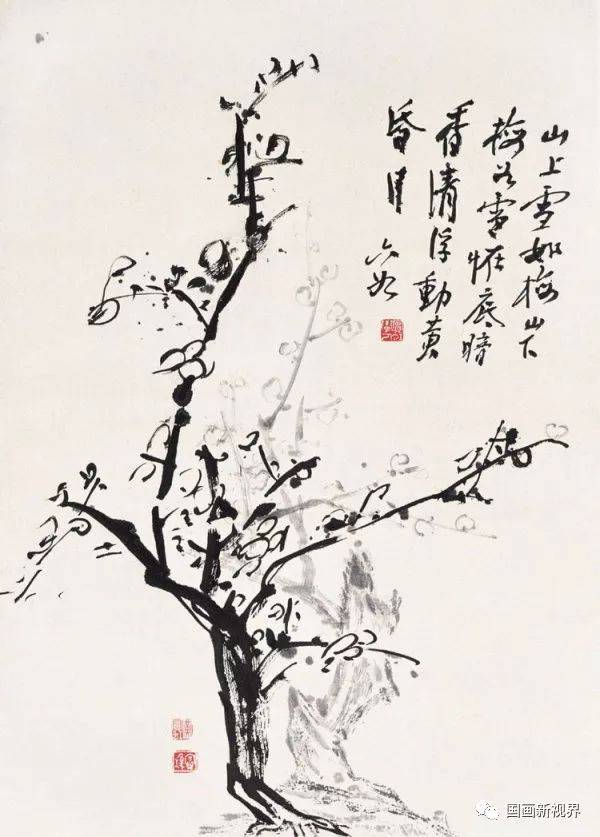 山上雪如梅山下
梅若雪恠底暗
香清浮動黄
昏月
国画新视界